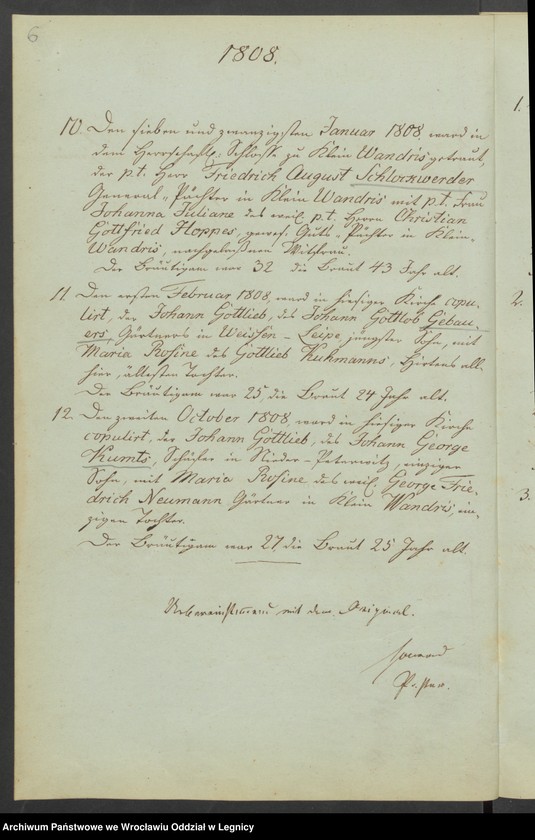 6
1808.
10. Den sieben und zwanzigsten Januar 1808, ward in
dem Herrschaftl. Schlosse zu Klein Wandris getraut,
der p.t. Herr Friedrich August Schlockwerder
General-Pächter in Klein Wandris mit p.t. Frau
Johanna Juliane des weil. p.t. Herrn Christian
Gottfried Hoppes, gewes. Guts-Pächter in Klein-
Wandris, nachgelassenen Wittfrau.
Der Bräutigam war 32 die Braut 43 Jahr alt.
11. Den ersten Februar 1808, ward in hiesiger Kirche copu-
lirt, der Johann Gottlieb, des Johann Gottlob Gebau-
ers, Gärtners in Weissen-Leipe, jüngster Sohn, mit
Maria Rosine des Gottlieb Kuhmanns, Hirtens all-
hier, ältesten Tochter.
Der Bräutigam war 25, die Braut 24 Jahr alt.
12. Den zweiten October 1808, ward in hiesiger Kirche
copulirt, der Johann Gottlieb, des Johann George
Kumts, Schäfer in Nieder-Peterwitz, einziger
Sohn, mit Maria Rosine des weil. George Frie-
drich Neumann Gärtner in Klein Wandris, ein-
zigen Tochter.
Der Bräutigam war 27, die Braut 25 Jahr alt.
Uebereinstimmend mit dem Original.
Pastor.
1.
2.
3.
Archiwum Państwowe we Wrocławiu Oddział w Legnicy